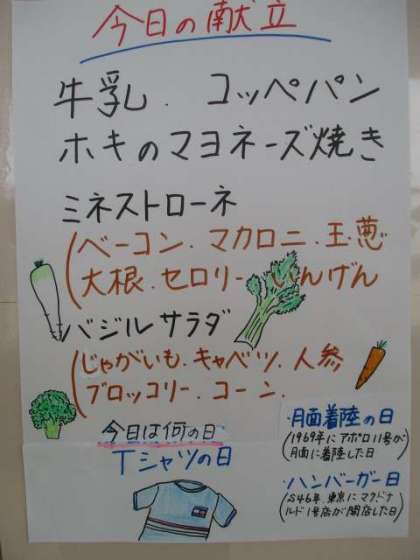 今日の献立
牛乳. コッペパン
ホキのマヨネーズ焼き
ミネストローネ
(ベーコン.マカロニ.玉葱
大根.セロリー.いんげん
バジルサラダ
(じゃがいも.キャベツ.人参
ブロッコリー.コーン.
今日は何の日
Tシャツの日
・月面着陸の日
(1969年にアポロ11号が
月面に着陸した日)
・ハンバーガー日
(S46年、東京にマクドナ
ルド1号店が開店した日)